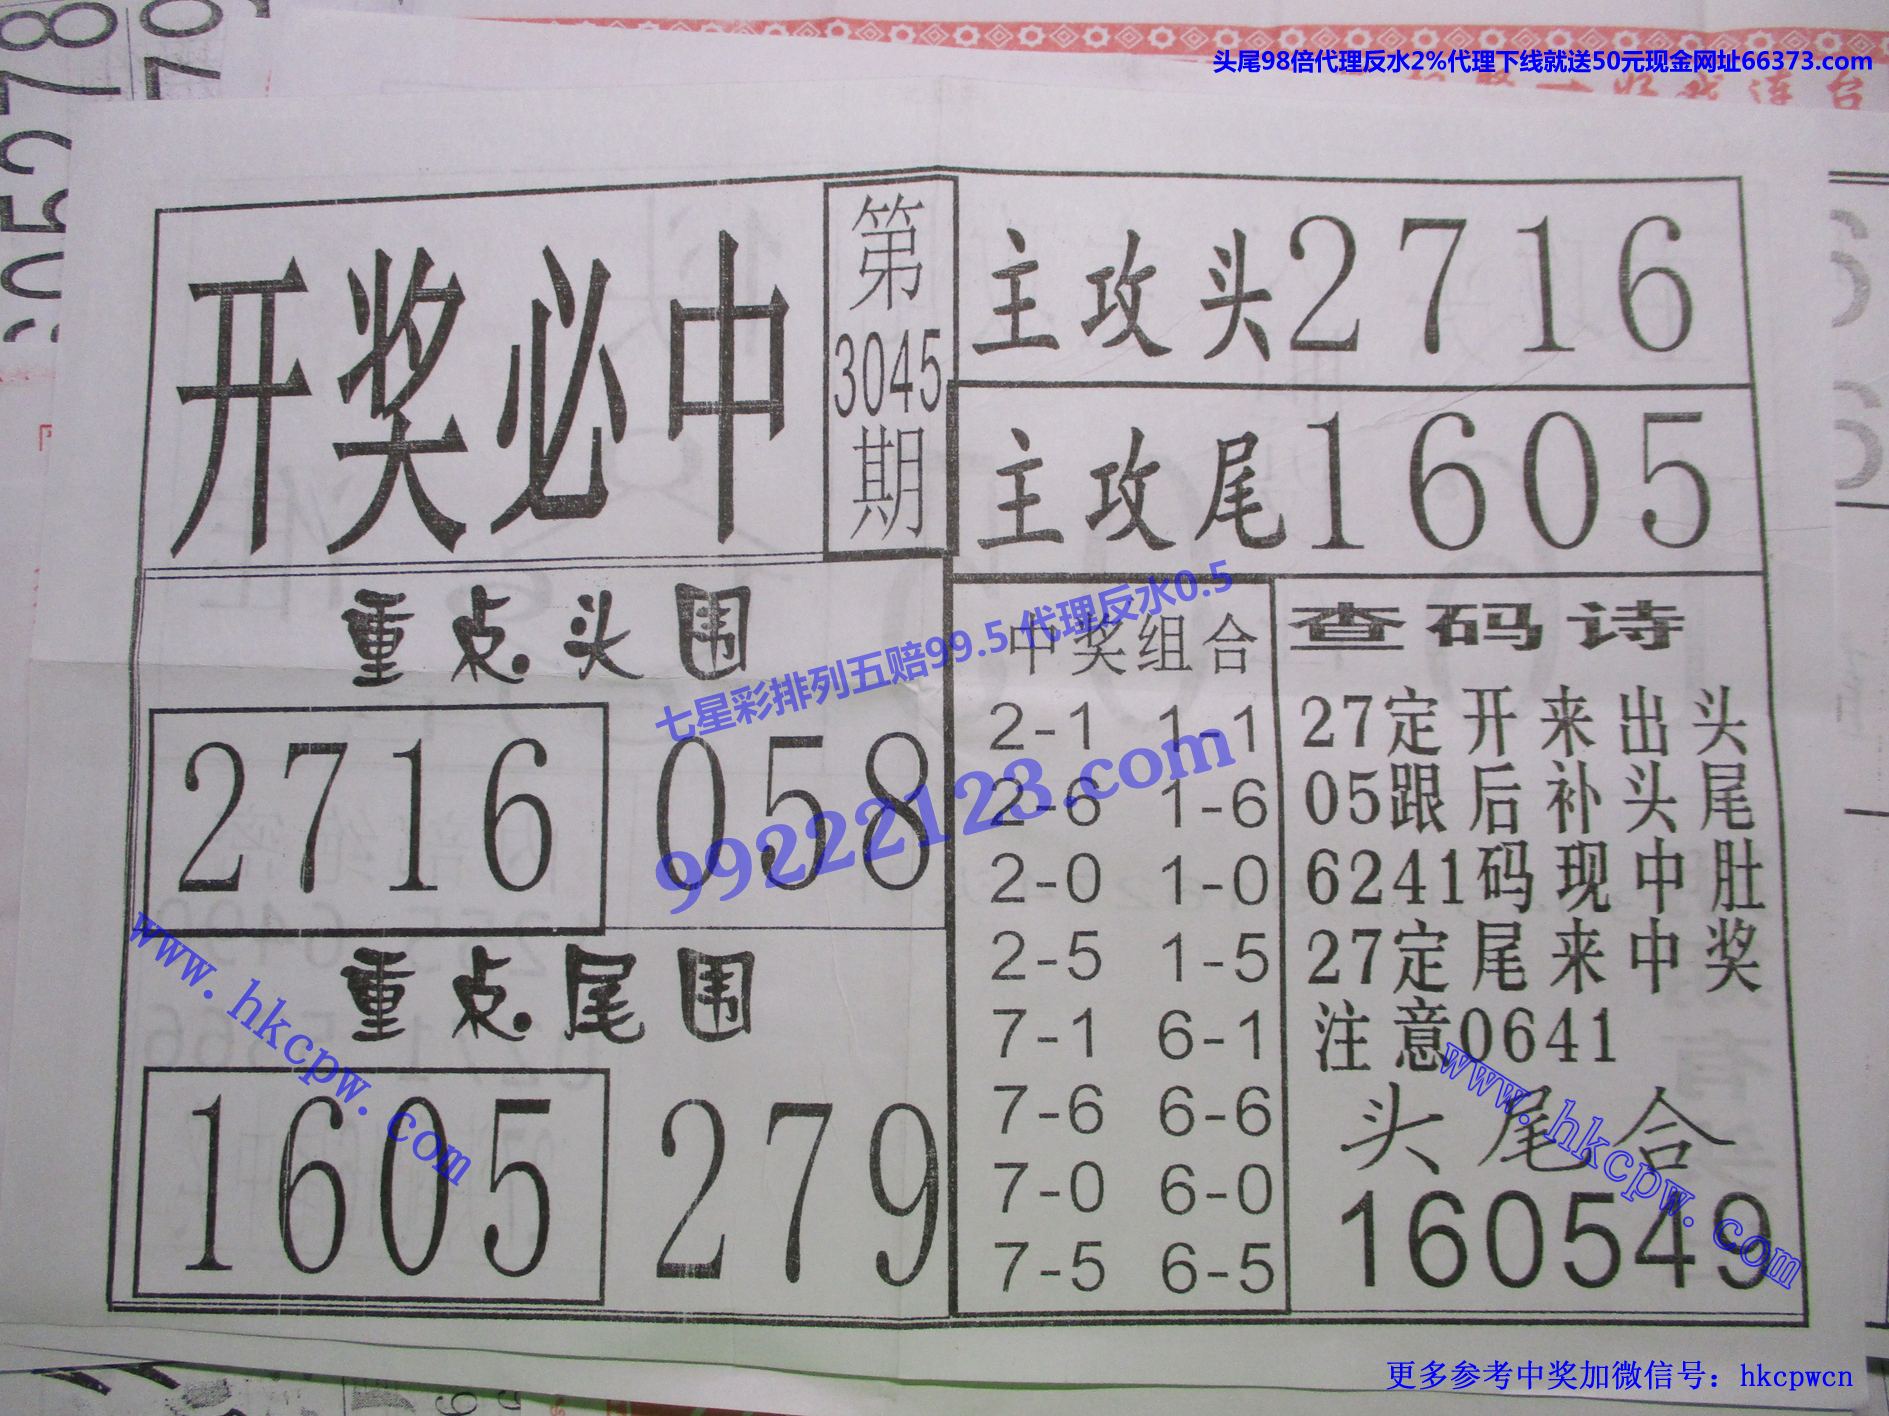 头尾98倍代理反水2%代理下线就送50元现金网址66373.com
开奖必中
第
3045
期
主攻头2716
主攻尾1605
重点头围
2716 058
重点尾围
1605 279
七星彩排列五赔99.5 代理反水0.5
99222123.com
中奖组合
2-1 1-1
2-6 1-6
2-0 1-0
2-5 1-5
7-1 6-1
7-6 6-6
7-0 6-0
7-5 6-5
查码诗
27定开来出头
05跟后补头尾
6241码现中肚
27定尾来中奖
注意0641
头尾合
160549
www.hkcpw.com
www.hkcpw.com
更多参考中奖加微信号：hkcpwcn